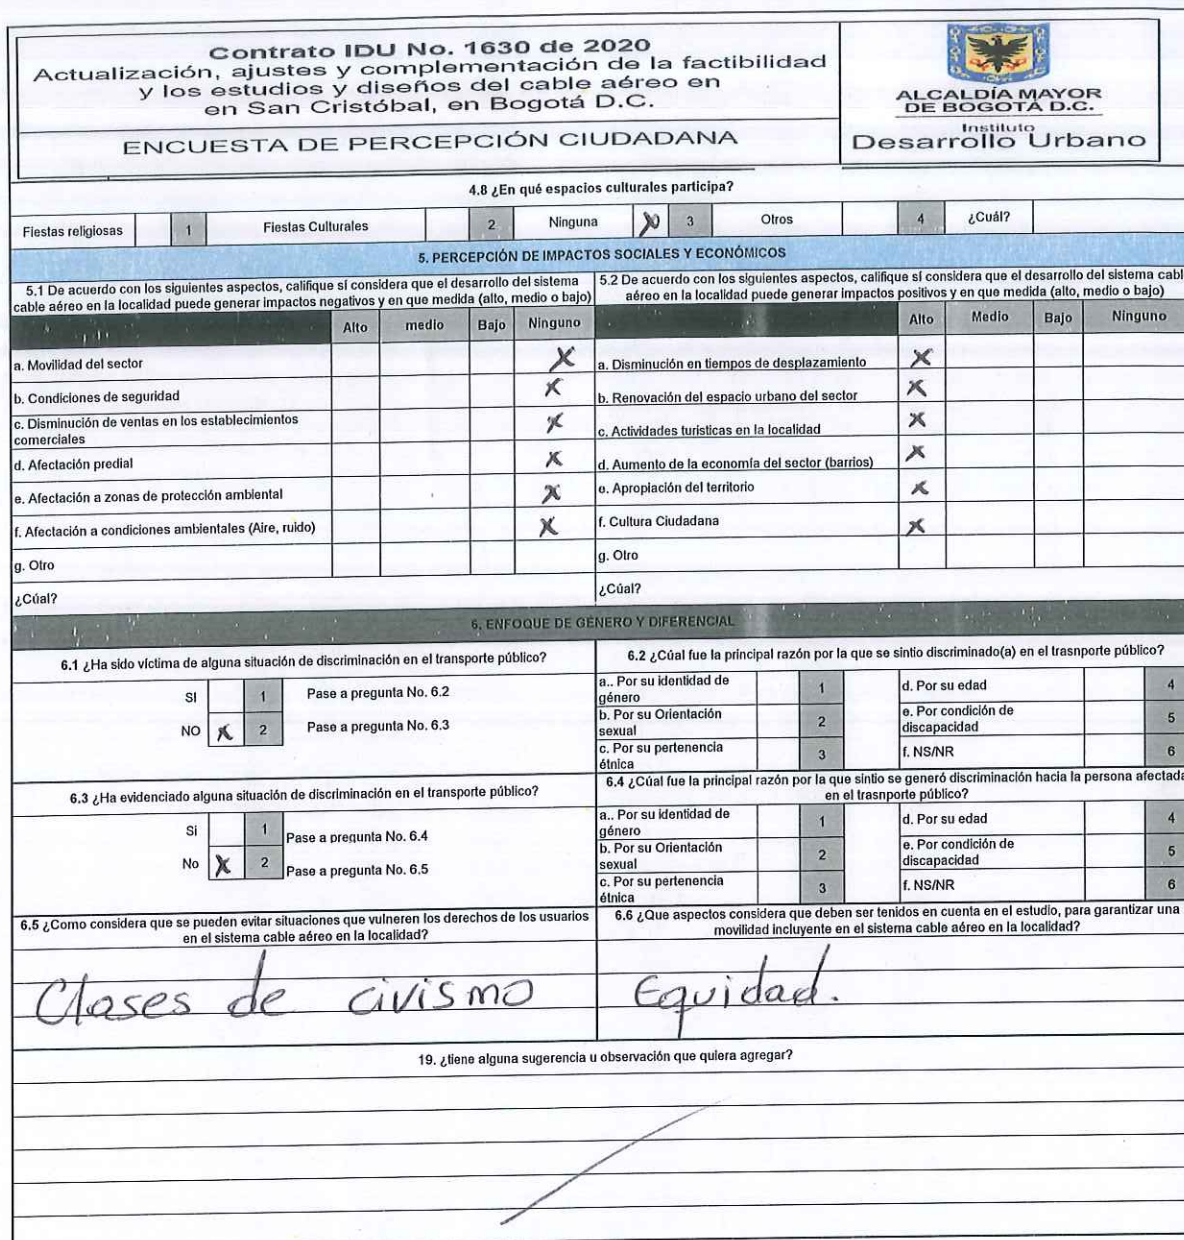 Contrato IDU No. 1630 de 2020
Actualización, ajustes y complementación de la factibilidad
y los estudios y diseños del cable aéreo en
en San Cristóbal, en Bogotá D.C.
ENCUESTA DE PERCEPCIÓN CIUDADANA
ALCALDÍA MAYOR
DE BOGOTÁ D.C.
Instituto
Desarrollo Urbano
4.8 ¿En qué espacios culturales participa?
Fiestas religiosas 1 Fiestas Culturales 2 Ninguna X 3 Otros 4 ¿Cuál?
5. PERCEPCIÓN DE IMPACTOS SOCIALES Y ECONÓMICOS
5.1 De acuerdo con los siguientes aspectos, califique sí considera que el desarrollo del sistema
cable aéreo en la localidad puede generar impactos negativos y en que medida (alto, medio o bajo)
Alto medio Bajo Ninguno
a. Movilidad del sector X
b. Condiciones de seguridad X
c. Disminución de ventas en los establecimientos
comerciales X
d. Afectación predial X
e. Afectación a zonas de protección ambiental X
f. Afectación a condiciones ambientales (Aire, ruido) X
g. Otro
¿Cúal?
5.2 De acuerdo con los siguientes aspectos, califique sí considera que el desarrollo del sistema cabl
aéreo en la localidad puede generar impactos positivos y en que medida (alto, medio o bajo)
Alto Medio Bajo Ninguno
a. Disminución en tiempos de desplazamiento X
b. Renovación del espacio urbano del sector X
c. Actividades turisticas en la localidad X
d. Aumento de la economía del sector (barrios) X
e. Apropiación del territorio X
f. Cultura Ciudadana X
g. Otro
¿Cúal?
6. ENFOQUE DE GÉNERO Y DIFERENCIAL
6.1 ¿Ha sido víctima de alguna situación de discriminación en el transporte público?
SI 1 Pase a pregunta No. 6.2
NO X 2 Pase a pregunta No. 6.3
6.2 ¿Cúal fue la principal razón por la que se sintio discriminado(a) en el trasnporte público?
a.. Por su identidad de
género 1
b. Por su Orientación
sexual 2
c. Por su pertenencia
étnica 3
d. Por su edad 4
e. Por condición de
discapacidad 5
f. NS/NR 6
6.3 ¿Ha evidenciado alguna situación de discriminación en el transporte público?
Si 1 Pase a pregunta No. 6.4
No X 2 Pase a pregunta No. 6.5
6.4 ¿Cúal fue la principal razón por la que sintio se generó discriminación hacia la persona afectada
en el trasnporte público?
a.. Por su identidad de
género 1
b. Por su Orientación
sexual 2
c. Por su pertenencia
étnica 3
d. Por su edad 4
e. Por condición de
discapacidad 5
f. NS/NR 6
6.5 ¿Como considera que se pueden evitar situaciones que vulneren los derechos de los usuarios
en el sistema cable aéreo en la localidad?
Clases de civismo
6.6 ¿Que aspectos considera que deben ser tenidos en cuenta en el estudio, para garantizar una
movilidad incluyente en el sistema cable aéreo en la localidad?
Equidad.
19. ¿tiene alguna sugerencia u observación que quiera agregar?